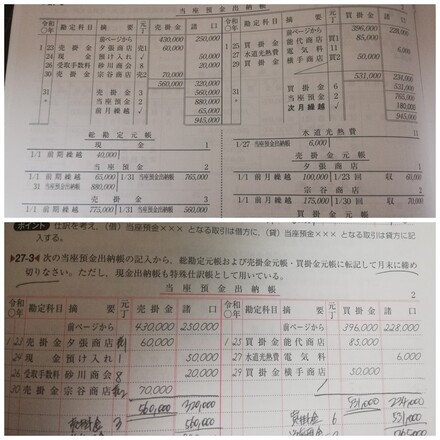 当座預金出納帳
令和〇年 勘定科目 摘要 元丁 売掛金 諸口
前ページから 430,000 250,000
1 23 売掛金 夕張商店 売1 60,000
24 現金 預け入れ 1 50,000
26 受取手数料 砂川商会 8 20,000
30 売掛金 宗谷商店 売2 70,000
560,000 320,000
31 売掛金 3 560,000
〃 当座預金 2 880,000
前月繰越 ✓ 65,000
945,000
勘定科目 摘要 元丁 買掛金 諸口
前ページから 396,000 228,000
1 25 買掛金 能代商店 買1 85,000
27 水道光熱費 電気料 6,000
29 買掛金 横手商店 50,000
531,000 234,000
31 買掛金 6 531,000
〃 当座預金 2 765,000
次月繰越 ✓ 180,000
945,000
総勘定元帳
現金 1
1/1 前期繰越 40,000
当座預金 2
1/1 前期繰越 65,000 1/31 当座預金出納帳 765,000
31 当座預金出納帳 880,000
売掛金 3
1/1 前期繰越 775,000 1/31 当座預金出納帳 560,000
水道光熱費 11
1/27 当座預金出納帳 6,000
売掛金元帳
夕張商店 1
1/1 前月繰越 100,000 1/23 回収 60,000
宗谷商店 2
1/1 前月繰越 175,000 1/30 回収 70,000
買掛金元帳
ポイント 仕訳を考え,(借) 当座預金××× となる取引は借方に,(貸) 当座預金××× となる取引は貸方に記入する。
27-3 次の当座預金出納帳の記入から,総勘定元帳および売掛金元帳・買掛金元帳に転記して月末に締め
切りなさい。ただし,現金出納帳も特殊仕訳帳として用いている。
当座預金出納帳 2
令和〇年 勘定科目 摘要 元丁 売掛金 諸口
前ページから 430,000 250,000
1 23 売掛金 夕張商店 売1 60,000
24 現金 預け入れ 1 50,000
26 受取手数料 砂川商会 8 20,000
30 売掛金 宗谷商店 売2 70,000
560,000 320,000
売掛金 3 560,000
令和〇年 勘定科目 摘要 元丁 買掛金 諸口
前ページから 396,000 228,000
1 25 買掛金 能代商店 85,000
27 水道光熱費 電気料 6,000
29 買掛金 横手商店 50,000
531,000 234,000
買掛金 6 531,000
765,000